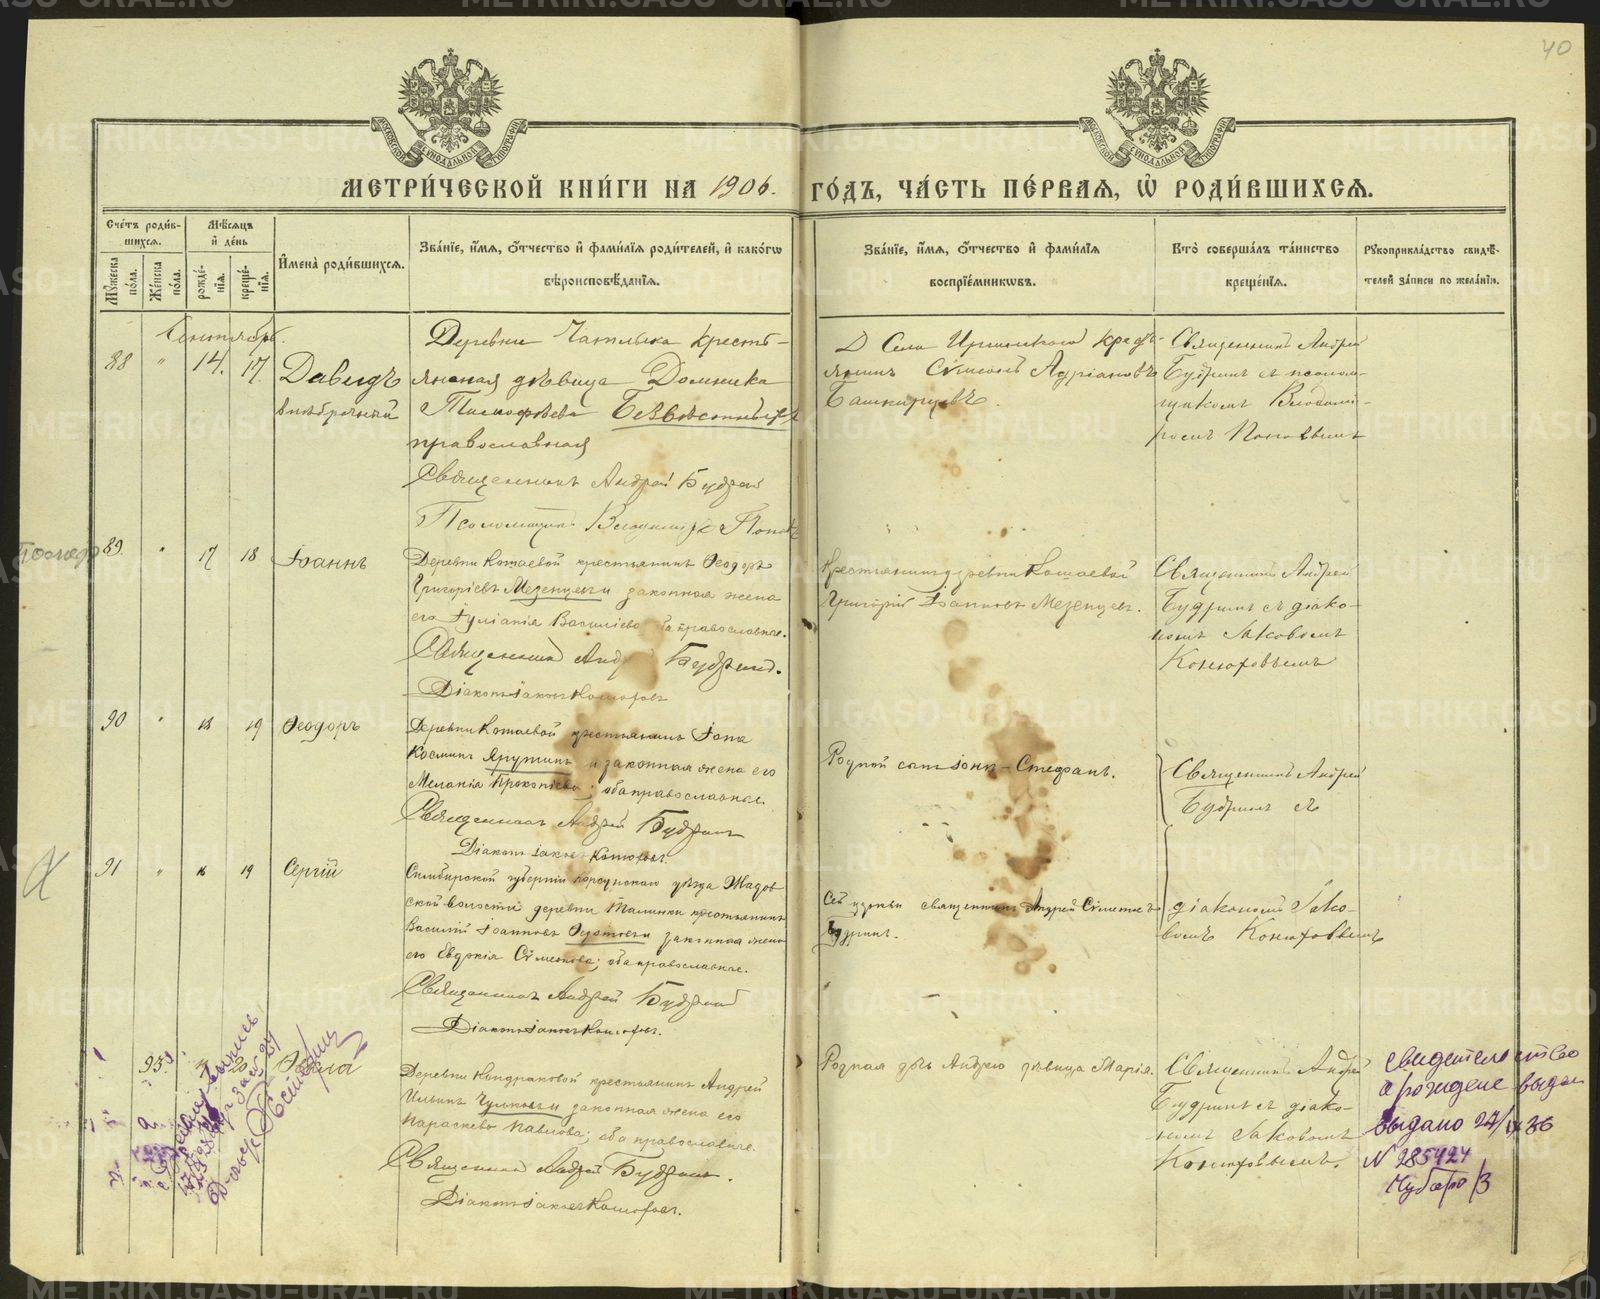 40
МЕТРИ́ЧЕСКОЙ КНИ́ГИ НА 1906. ГО́ДЪ, ЧА́СТЬ ПЕ́РВАЯ, Ѡ҆ РОДИ́ВШИХСЯ.
Сче́тъ роди́в-
шихся.
Мꙋ́жеска по́ла.
Же́нска по́ла.
Мѣ́сяцъ
и҆ де́нь
рожде́-
нїя.
креще́-
нїя.
И҆мена̀ роди́вшихся.
Зва́нїе, и҆́мя, ѻ҆́тчество и҆ фами́лїя роди́телей, и҆ како́гѡ
вѣроисповѣ́данїя.
Зва́нїе, и҆́мя, ѻ҆́тчество и҆ фами́лїя
воспрїе́мникѡвъ.
Кто̀ соверша́лъ та́инство
креще́нїя.
Рꙋкоприкла́дство свидѣ́-
телей за́писи по жела́нїю.
Сентябрь.
88 " 14. 17. Давидъ
внѣбрачный
Деревни Чатлыка кресть-
янская дѣвица Домника
Тимофѣева Безвѣстныхъ
православная
Священникъ Андрей Будрин
Псаломщикъ Владимiръ Попов
Села Иргинскаго кресть-
янинъ Сѵмеонъ Адріановъ
Башкирцевъ.
Священникъ Андрей
Будринъ съ псалом-
щикомъ Владими-
ромъ Поповымъ
89. " 17 18 Іоаннъ
Деревни Котаевой крестьянинъ Ѳеодоръ
Григоріевъ Мезенцевъ и законная жена
его Іуліанія Василіева оба православные.
Священникъ Андрей Будринъ.
Діаконъ Іаковъ Конюховъ
Крестьянинъ деревни Котаевой
Григорій Іоанновъ Мезенцевъ.
Священникъ Андрей
Будринъ съ діако-
номъ Іаковомъ
Конюховымъ
90 " 18 19 Ѳеодоръ
Деревни Котаевой крестьянинъ Іона
Косминъ Ярутинъ и законная жена его
Меланія Прокопіева; оба православные.
Священникъ Андрей Будринъ
Діаконъ Іаковъ Конюховъ.
Родной сынъ Іоны - Стефанъ.
Священникъ Андрей
Будринъ съ
91 " 18 19 Сергій
Симбирской губерніи Корсунскаго уѣзда Жадов
ской волости деревни Талинки крестьянинъ
Василій Іоанновъ законная жена
его Евдокія Сѵмеонова; оба православные.
Священникъ Андрей Будринъ
Діаконъ Іаковъ Конюховъ.
Сей церкви священникъ Андрей Сѵмеоновъ
Будринъ.
діакономъ Іако-
вомъ Конюховымъ
95. 20 Ѳекла
Деревни Кондраковой крестьянинъ Андрей
Ильинъ законная жена его
Параскева Павлова; оба православные.
Священникъ Андрей Будринъ.
Діаконъ Іаковъ Конюховъ.
Родная дочь Андрея дѣвица Марія.
Священникъ Андрей
Будринъ съ діако-
номъ Іаковомъ
Конюховымъ.
свидетельство
о рождене выдан
выдано 27/IX 36
N 285424